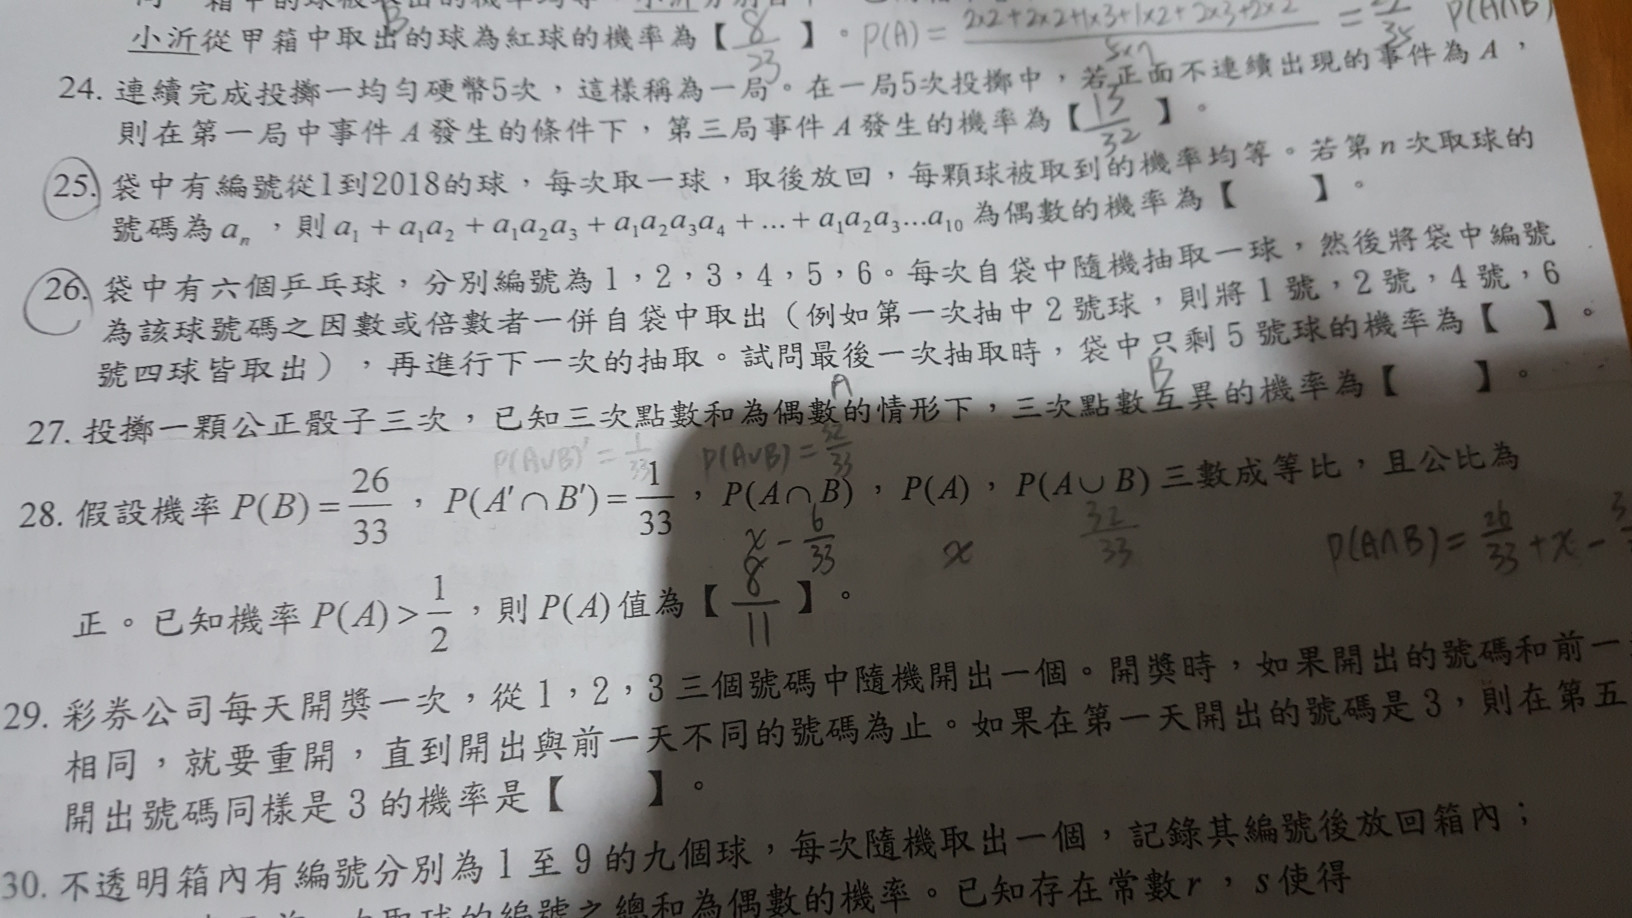 小沂從甲箱中取出的球為紅球的機率為【 8/23 】。P(A) = (2x2+2x2+1x3+1x2+2x3+2x2)/(5x7) = /35 P(A∩B)
24. 連續完成投擲一均勻硬幣5次，這樣稱為一局。在一局5次投擲中，若正面不連續出現的事件為 A，
則在第一局中事件 A 發生的條件下，第三局事件 A 發生的機率為【 13/32 】。
25. 袋中有編號從1到2018的球，每次取一球，取後放回，每顆球被取到的機率均等。若第 n 次取球的
號碼為 aₙ，則 a₁ + a₁a₂ + a₁a₂a₃ + a₁a₂a₃a₄ + ... + a₁a₂a₃...a₁₀ 為偶數的機率為【 】。
26. 袋中有六個乒乓球，分別編號為 1，2，3，4，5，6。每次自袋中隨機抽取一球，然後將袋中編號
為該球號碼之因數或倍數者一併自袋中取出（例如第一次抽中 2 號球，則將 1 號，2 號，4 號，6
號四球皆取出），再進行下一次的抽取。試問最後一次抽取時，袋中只剩 5 號球的機率為【 】。
A B
27. 投擲一顆公正骰子三次，已知三次點數和為偶數的情形下，三次點數互異的機率為【 】。
P(A∪B)' = 1/33 P(A∪B) = 32/33
28. 假設機率 P(B) = 26/33，P(A'∩B') = 1/33，P(A∩B)，P(A)，P(A∪B) 三數成等比，且公比為
x - 6/33 x 32/33 P(A∩B) = 26/33 + x -
正。已知機率 P(A) > 1/2，則 P(A) 值為【 8/11 】。
29. 彩券公司每天開獎一次，從 1，2，3 三個號碼中隨機開出一個。開獎時，如果開出的號碼和前一
相同，就要重開，直到開出與前一天不同的號碼為止。如果在第一天開出的號碼是 3，則在第五
開出號碼同樣是 3 的機率是【 】。
30. 不透明箱內有編號分別為 1 至 9 的九個球，每次隨機取出一個，記錄其編號後放回箱內；
次取球的編號之總和為偶數的機率。已知存在常數 r，s 使得